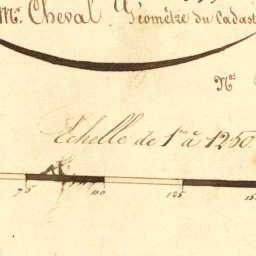 Mr. Cheval Géomètre du Cadast
Nos
Echelle de 1 à 1250.
75 100 125 15